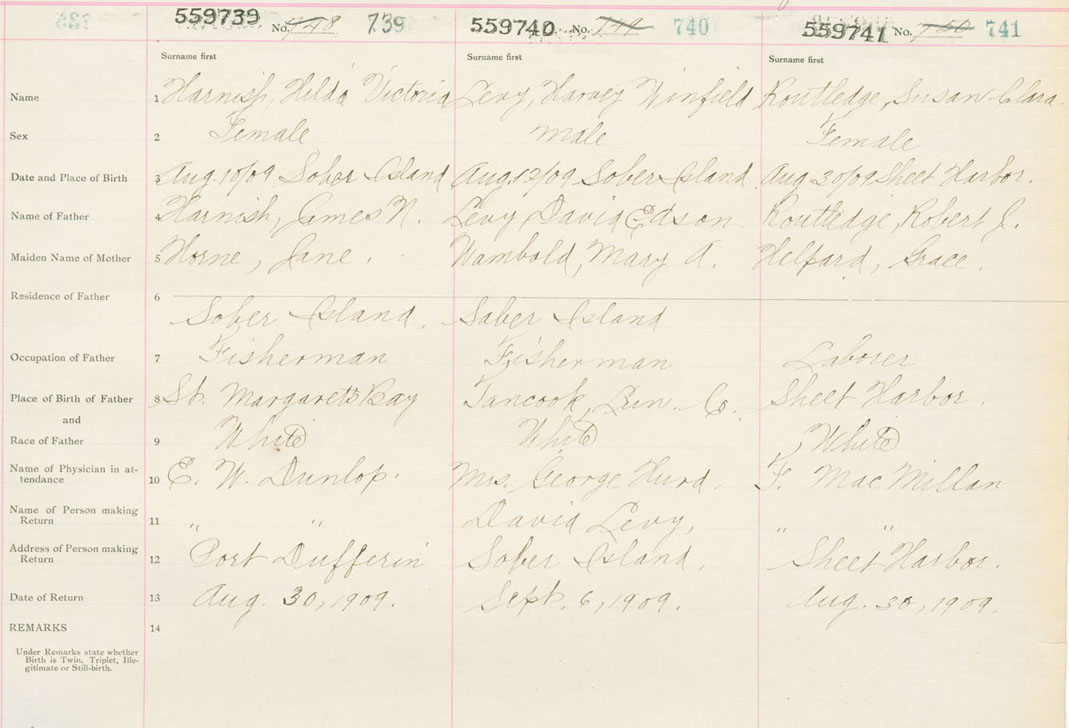 559739 No. 739 559740 No. 740 559741 No. 741
Surname first Surname first Surname first
Name 1 Harnish, Hilda Victoria Levy, Harvey Winfield Routledge, Susan Clara
Sex 2 Female Male Female
Date and Place of Birth 3 Aug. 10/09 Sober Island Aug. 12/09 Sober Island Aug 30/09 Sheet Harbor.
Name of Father 4 Harnish, James N. Levy, David Edson Routledge, Robert J.
Maiden Name of Mother 5 Horne, Jane. Wambold, Mary A. Helpard, Grace.
Residence of Father 6
Sober Island. Sober Island
Occupation of Father 7 Fisherman Fisherman Laborer
Place of Birth of Father 8 St. Margarets Bay Tancook, Lun. Co. Sheet Harbor.
and
Race of Father 9 White White White
Name of Physician in at-
tendance 10 E. W. Dunlop. Mrs. George Hurd. F. MacMillan
Name of Person making
Return 11 " " David Levy, " "
Address of Person making
Return 12 Port Dufferin Sober Island. Sheet Harbor.
Date of Return 13 Aug. 30, 1909. Sept. 6, 1909. Aug. 30, 1909.
REMARKS 14
Under Remarks state whether
Birth is Twin, Triplet, Ille-
gitimate or Still-birth.